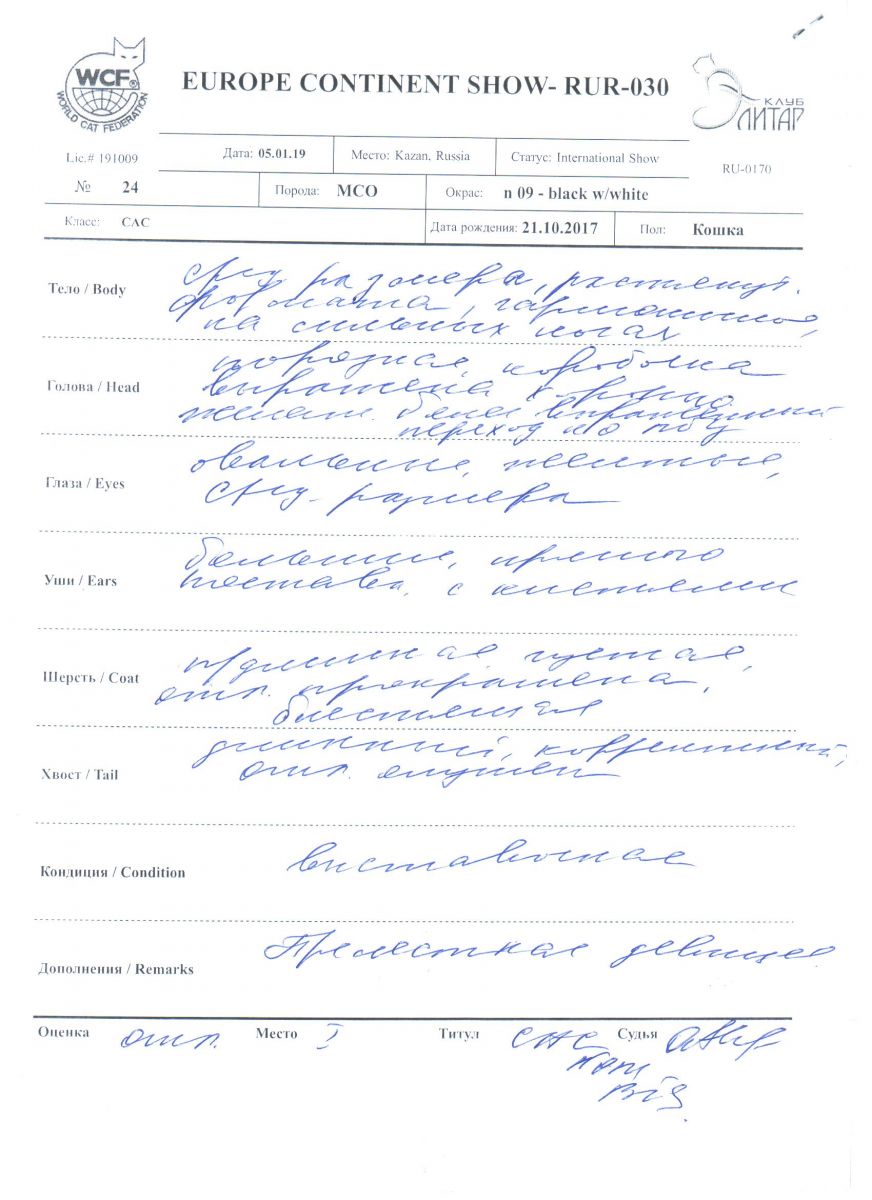 WCF®
WORLD CAT FEDERATION
EUROPE CONTINENT SHOW- RUR-030
КЛУБ
ЭЛИТАР
Lic.# 191009
Дата: 05.01.19
Место: Kazan, Russia
Статус: International Show
RU-0170
№ 24
Порода: MCO
Окрас: n 09 - black w/white
Класс: CAC
Дата рождения: 21.10.2017
Пол: Кошка
Тело / Body
сред размера, растянут.
формата, гармоничное,
на сильных ногах
Голова / Head
породная, коробочка
выражена хорошо,
желат. более выраженный
переход
Глаза / Eyes
овальные, желтые,
сред. размера
Уши / Ears
большие, прямого
постава, с кисточками
Шерсть / Coat
п/длинная, густая,
отл. прокрашена,
блестящая
Хвост / Tail
длинный, корректный,
отл. опушен
Кондиция / Condition
выставочная
Дополнения / Remarks
Прелестная девица
Оценка отл.
Место I
Титул CAC
Судья
Nom
BIS